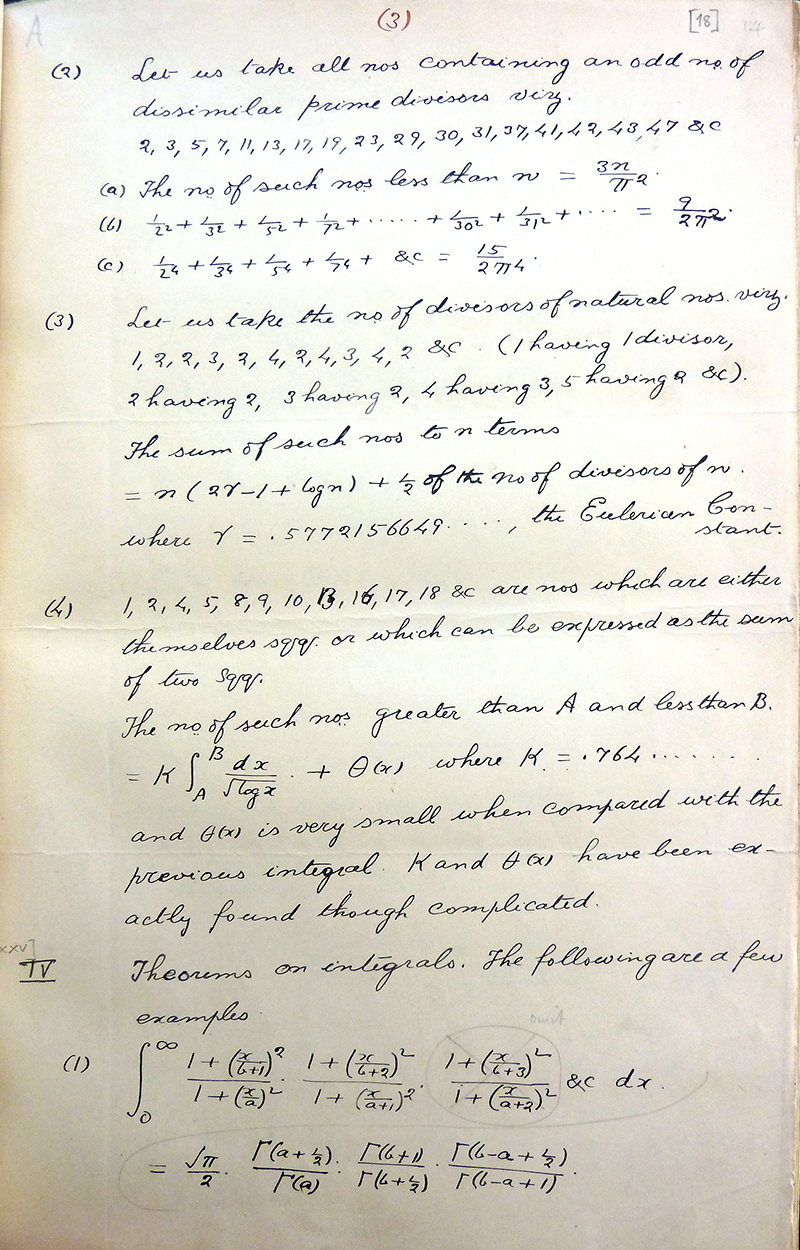 A (3) [18]
(2) Let us take all nos containing an odd no. of
dissimilar prime divisors viz.
2, 3, 5, 7, 11, 13, 17, 19, 23, 29, 30, 31, 37, 41, 42, 43, 47 &c
(a) The no. of such nos less than n = 3n/π².
(b) 1/2² + 1/3² + 1/5² + 1/7² + ..... + 1/30² + 1/31² + .... = 9/2π².
(c) 1/2⁴ + 1/3⁴ + 1/5⁴ + 1/7⁴ + &c = 15/2π⁴.
(3) Let us take the no. of divisors of natural nos. viz.
1, 2, 2, 3, 2, 4, 2, 4, 3, 4, 2 &c. (1 having 1 divisor,
2 having 2, 3 having 2, 4 having 3, 5 having 2 &c).
The sum of such nos to n terms
= n (2γ-1 + log n) + 1/2 of the no of divisors of n.
where γ = .5772156649....., the Eulerian Con-
stant.
(4) 1, 2, 4, 5, 8, 9, 10, 13, 16, 17, 18 &c are nos which are either
themselves sqq. or which can be expressed as the sum
of two Sqq.
The no. of such nos greater than A and less than B.
= K ∫_A^B dx/√log x . + θ(x) where K = .764........
and θ(x) is very small when compared with the
previous integral. K and θ(x) have been ex-
actly found though complicated.
xxv]
IV Theorems on integrals. The following are a few
examples
omit
(1) ∫_0^∞ (1 + (x/b+1)²)/(1 + (x/a)²) . (1 + (x/b+2)²)/(1 + (x/a+1)²) . (1 + (x/b+3)²)/(1 + (x/a+2)²) &c dx.
= √π/2 . Γ(a+1/2)/Γ(a) . Γ(b+1)/Γ(b+1/2) . Γ(b-a+1/2)/Γ(b-a+1) .